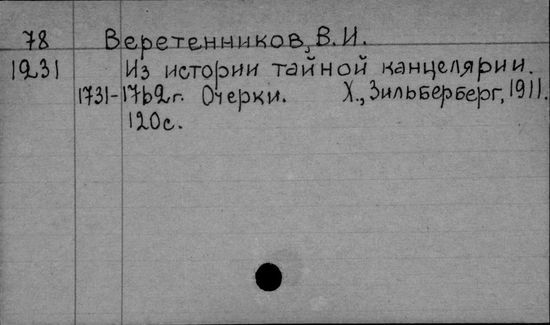 78 Веретенников, В.И.
1231 Из истории тайной канцелярии.
1731-1762г. Очерки. Х., Зильберберг, 1911.
120с.